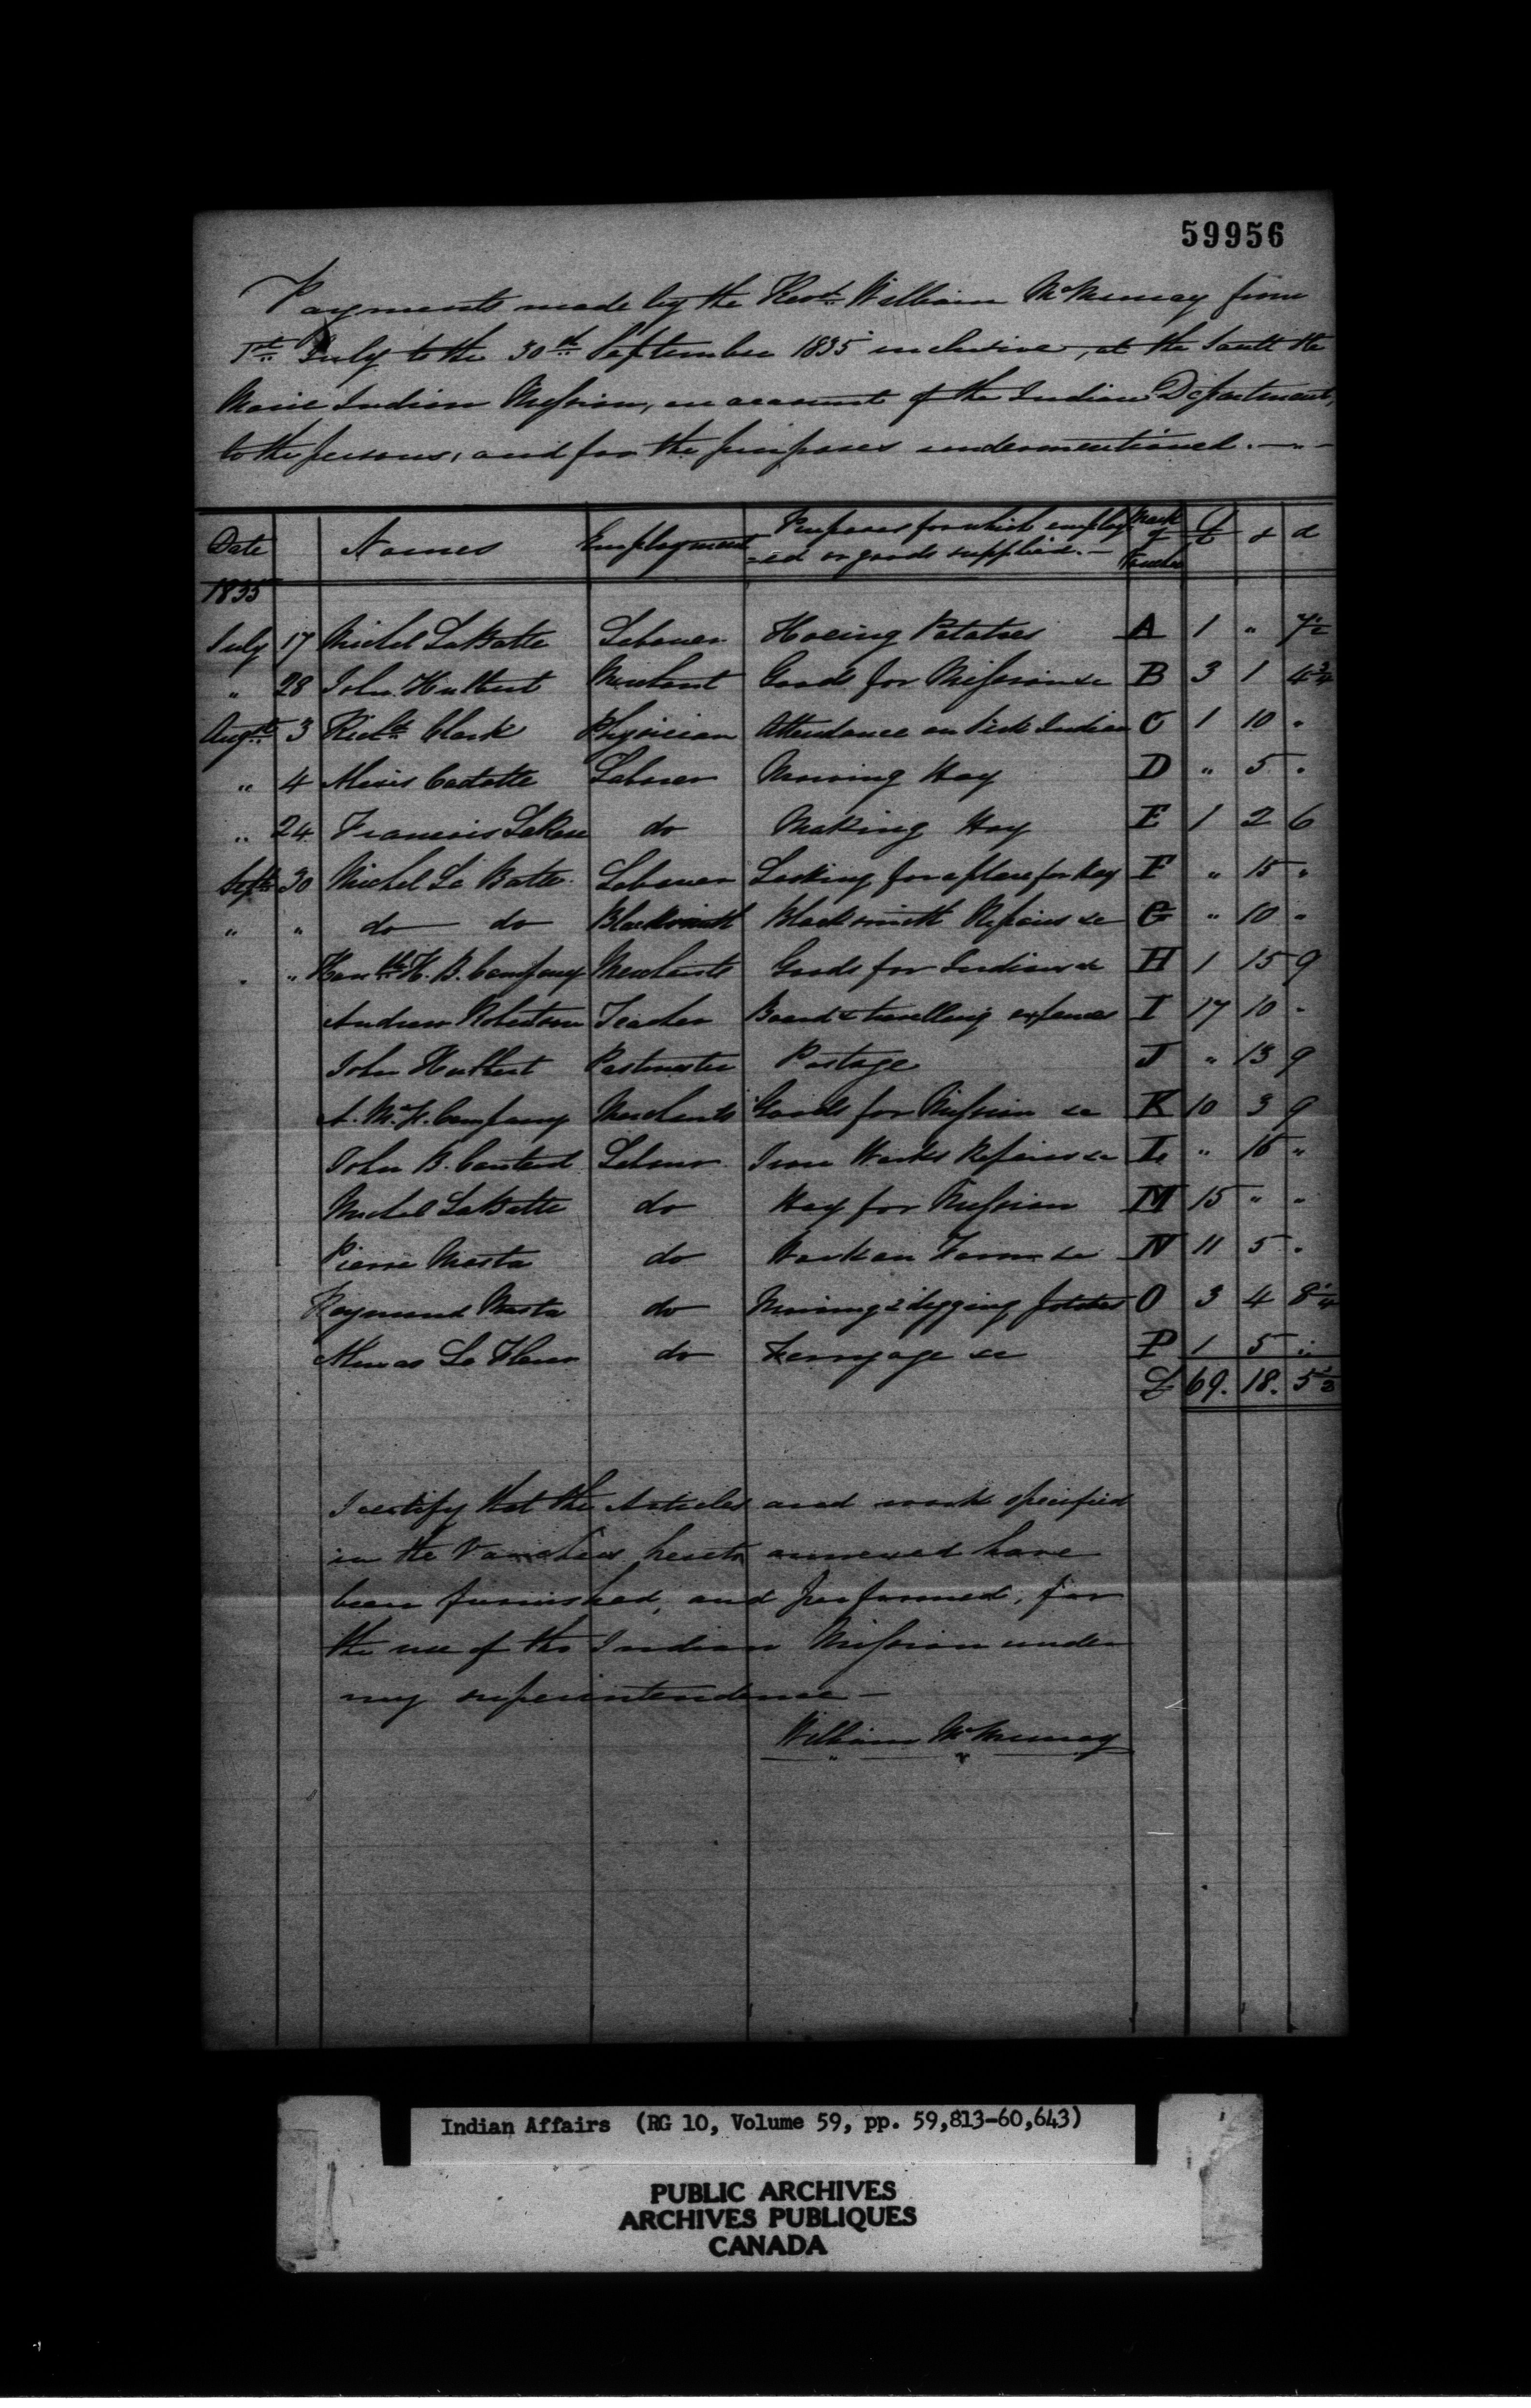 59956
Payments made by the Revd. William McMurray from
1st July to the 30th September 1835 inclusive, at the Sault Ste
Marie Indian Mission, on account of the Indian Department,
to the persons, and for the purposes undermentioned.
Date Names Employment Purposes for which employ- Mark £ s d
=ed or goods supplied.— of
Voucher
1835
July 17 Michel LaBatte Labourer Hoeing Potatoes A 1 " 7½
" 28 John Hulbert Merchant Goods for Mission &c B 3 1 4¾
Augst 3 Richd Clark Physician Attendance on Sick Indian C 1 10 "
" 4 Alexis Cadotte Labourer Mowing Hay D " 5 "
" 24 Francois LaRose do Making Hay E 1 2 6
Septr 30 Michel La Batte Labourer Looking for a place for Hay F " 15 "
" " do do Blacksmith Blacksmith Repairs &c G " 10 "
" " Honble H. B. Company Merchants Goods for Indians &c H 1 15 9
Andrew Robertson Teacher Board & travelling expenses I 17 10 "
John Hulbert Postmaster Postage J " 13 9
A. M. F. Company Merchants Goods for Mission &c K 10 3 9
John B. Labour Iron Works Repairs &c L " 16 "
Michel LaBatte do Hay for Mission M 15 " "
Pierre Masta do Work on Farm &c N 11 5 "
Raymond Masta do Mowing & digging potatoes O 3 4 8¼
La Fleur do Ferryage &c P 1 5 "
£ 69. 18. 5½
I certify that the Articles and work specified
in the Vouchers hereto annexed have
been furnished, and performed, for
the use of the Indian Mission under
my superintendence—
William McMurray
Indian Affairs (RG 10, Volume 59, pp. 59,813-60,643)
PUBLIC ARCHIVES
ARCHIVES PUBLIQUES
CANADA